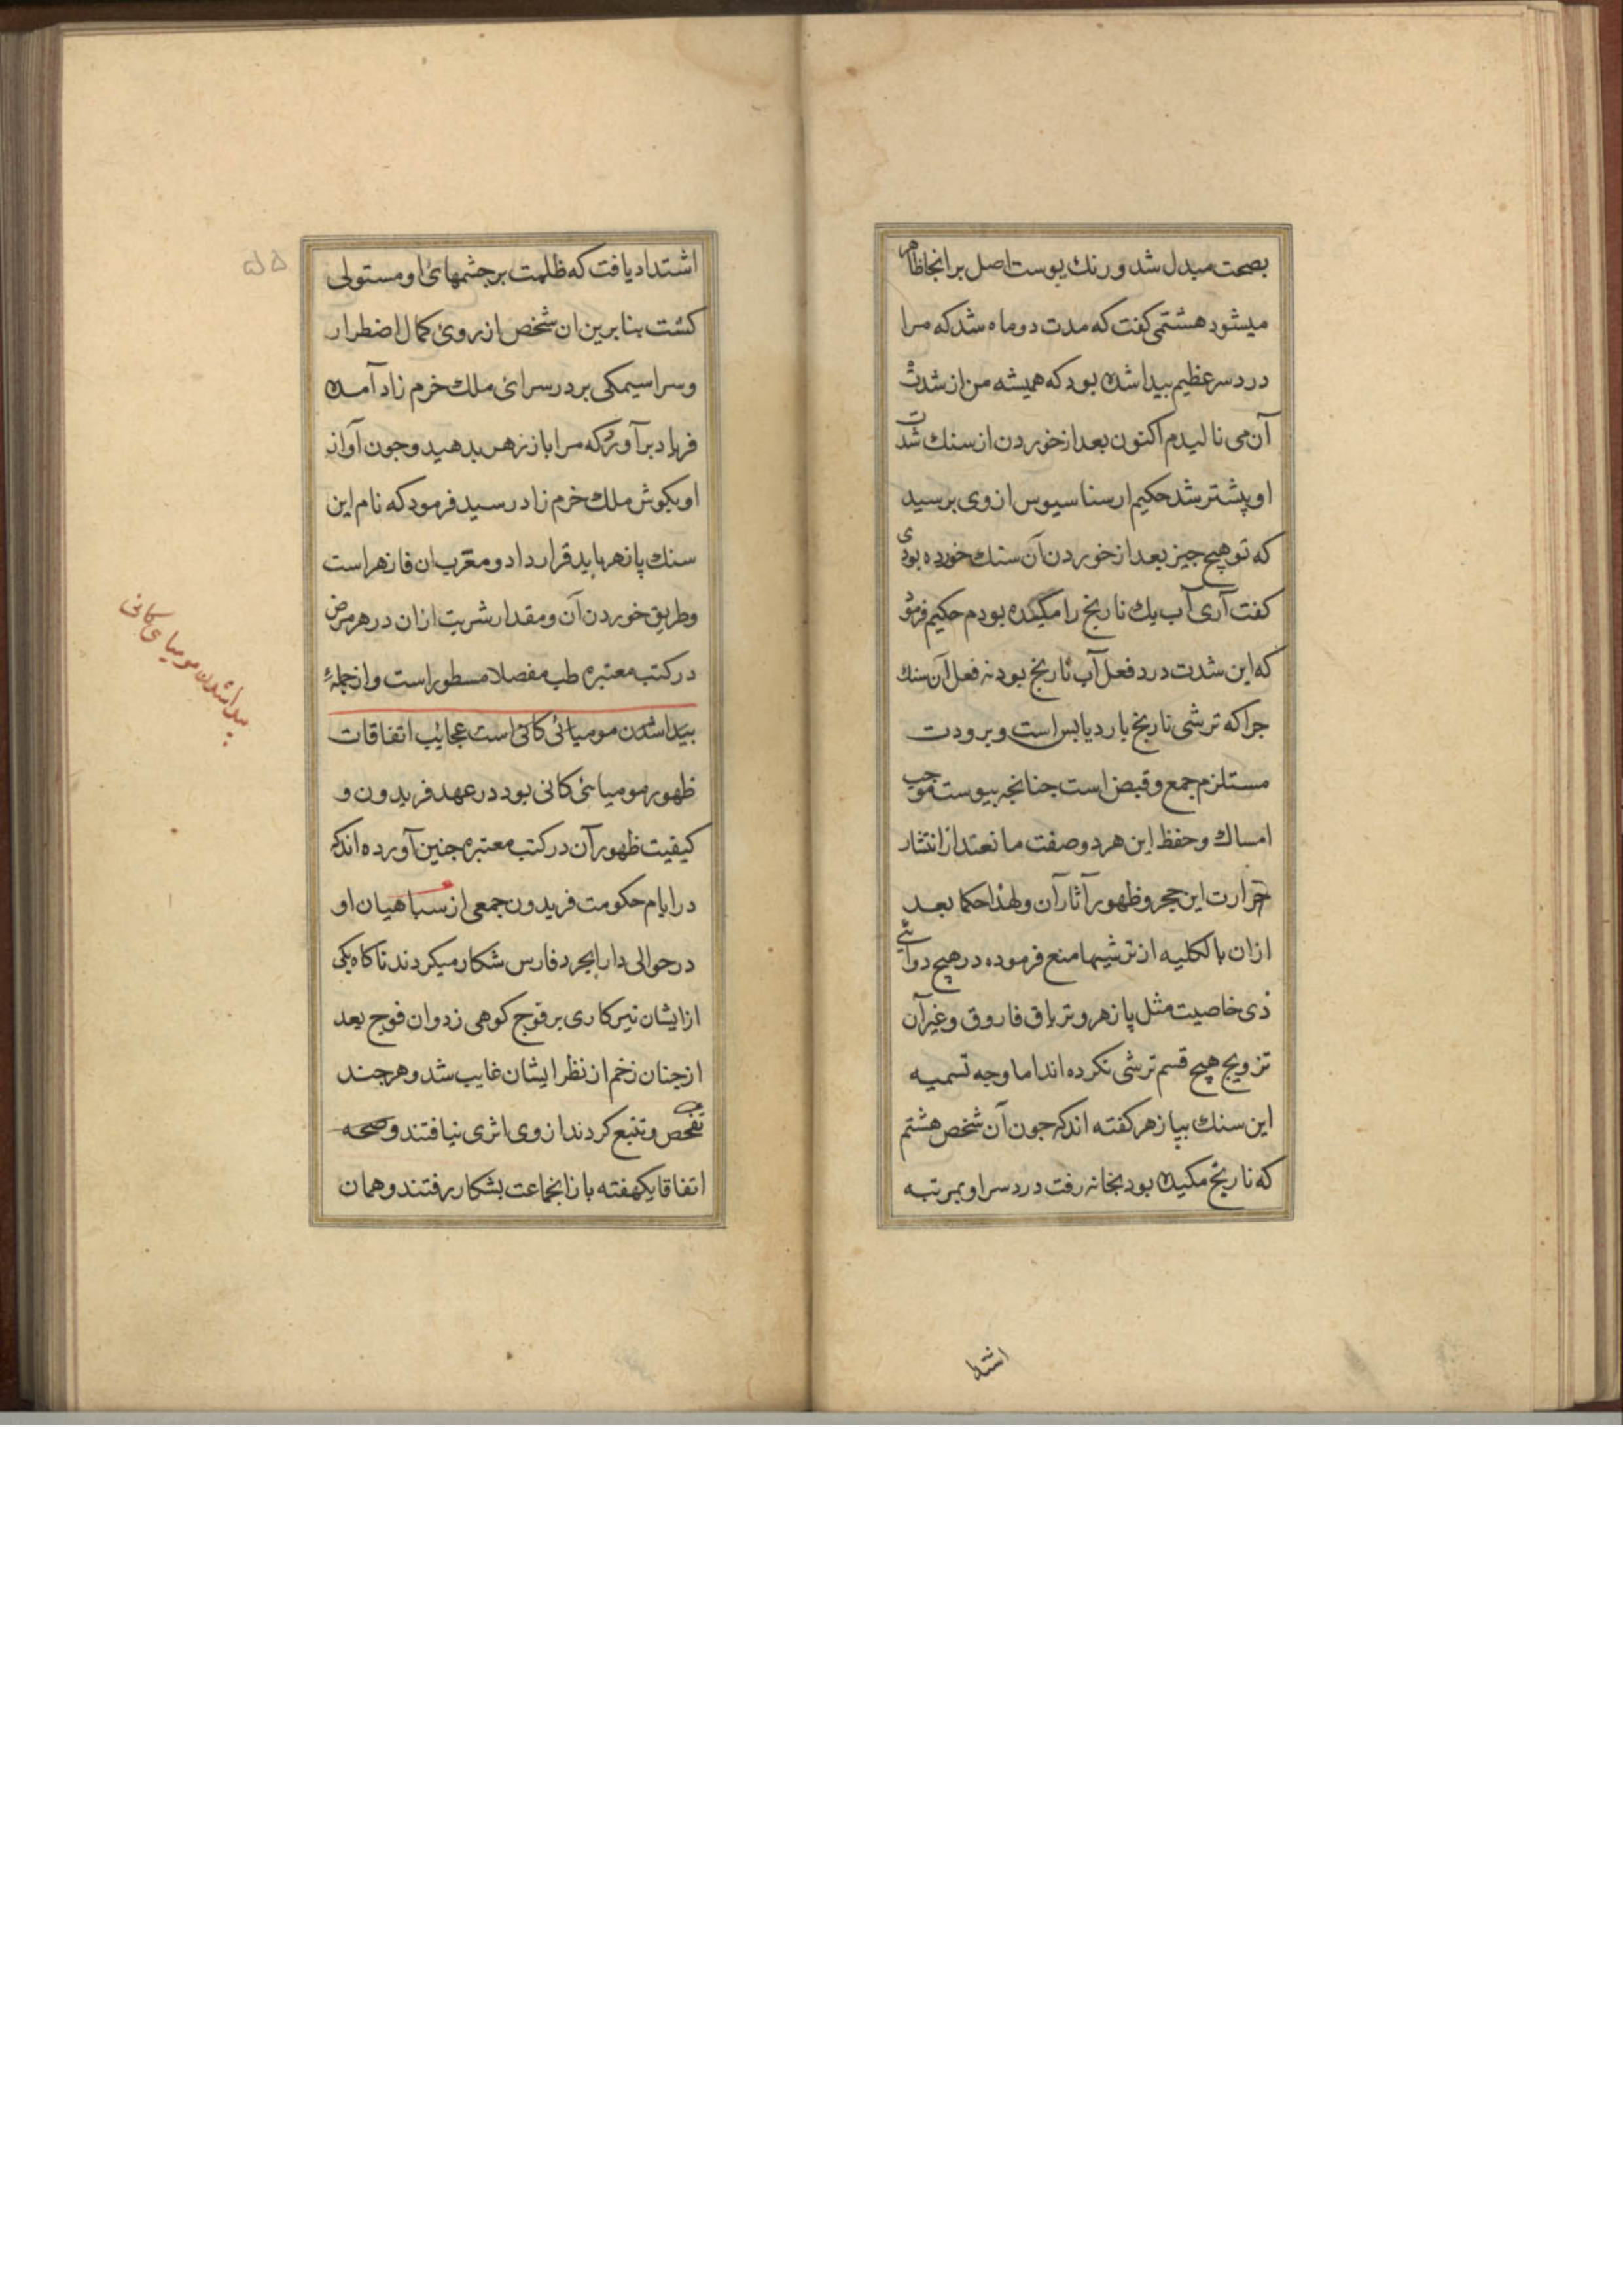 بصحت مبدل شد و رنك پوست اصل بر انجا ظاهر
میشود هشتمی کفت که مدت دو ماه شد که مرا
درد سر عظیم بیدا شده بود که همیشه من از شدت
آن می نالیدم اکنون بعد از خوردن از سنك شدت
او پشتر شد حکیم ارسناسیوس از وی برسید
که تو هیچ جیز بعد از خوردن آن سنك خورده بودی
کفت آری آب یك نارنج را مکیده بودم حکیم فرمود
که این شدت درد فعل آب نارنج بود نه فعل آن سنك
جرا که ترشی نارنج بارد یابس است و برودت
مستلزم جمع و قبض است جنانجه یبوست موجب
امساك و حفظ این هر دو صفت مانعند از انتشار
حرارت این حجر و ظهور آثار آن و لهذا حکما بعد
ازان بالکلیه از ترشیها منع فرموده در هیچ دوائے
ذی خاصیت مثل پازهر و تریاق فاروق و غیر آن
تزویج هیچ قسم ترشی نکرده اند اما وجه تسمیه
این سنك بپازهر کفته اند که جون آن شخص هشتم
که نارنج مکیده بود بخانه رفت درد سر او بمرتبه
اشتد
اشتداد یافت که ظلمت بر جشمهائ او مستولی
کشت بنابرین ان شخص از روئ کمال اضطرار
و سراسیمکی بر در سرائ ملك خرم زاد آمده
فریاد برآورد که مرا باز زهر بدهید و جون آواز
او بکوش ملك خرم زاد رسید فرمود که نام این
سنك پازهر باید قرار داد و معرب ان فازهر است
و طریق خوردن آن و مقدار شربت ازان در هر مرض
در کتب معتبره طب مفصلا مسطور است و ازجملهٔ
بیدا شدن مومیائی کانی است عجایب اتفاقات
ظهور مومیائی کانی بود در عهد فریدون و
کیفیت ظهور آن در کتب معتبره جنین آورده اند که
در ایام حکومت فریدون جمعی از سباهیان او
در حوالی دارابجرد فارس شکار میکردند ناکاه یکی
از ایشان تیر کاری بر قوج کوهی زد و ان قوج بعد
از جنان زخم از نظر ایشان غایب شد و هر جند
تفحص و تتبع کردند از وی اثری نیافتند و
اتفاقا یکهفته باز انجماعت بشکار رفتند و همان
بیدا شدن مومیای کانی